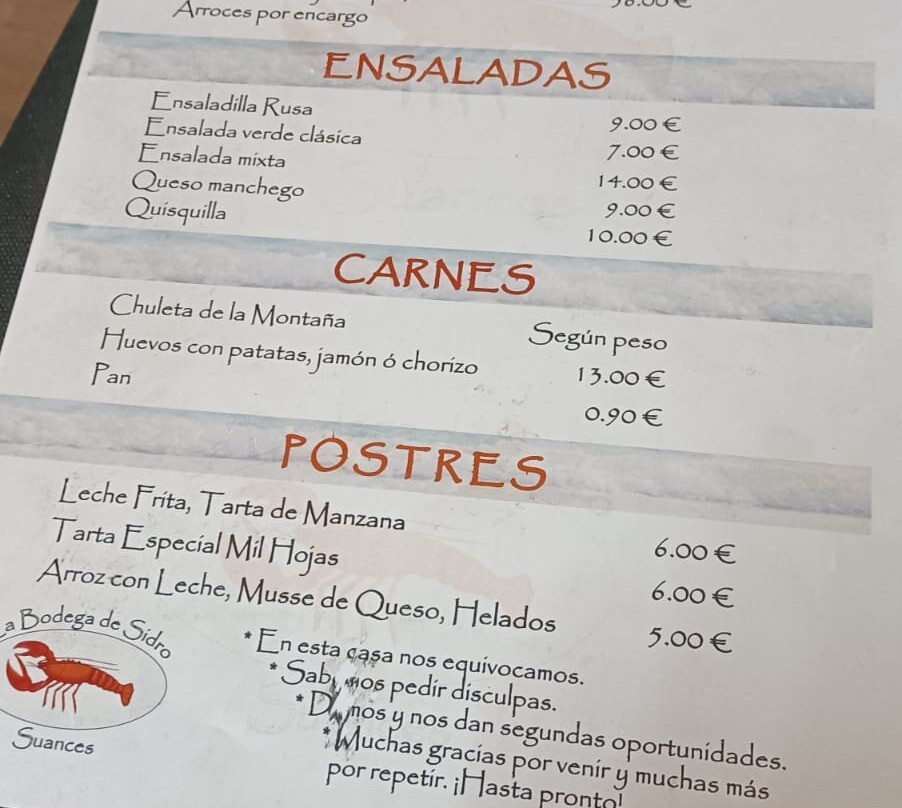 Arroces por encargo
ENSALADAS
Ensaladilla Rusa 9.00 €
Ensalada verde clásica 7.00 €
Ensalada mixta 14.00 €
Queso manchego 9.00 €
Quisquilla 10.00 €
CARNES
Chuleta de la Montaña Según peso
Huevos con patatas, jamón ó chorizo 13.00 €
Pan 0.90 €
POSTRES
Leche Frita, Tarta de Manzana 6.00 €
Tarta Especial Mil Hojas 6.00 €
Arroz con Leche, Musse de Queso, Helados 5.00 €
a Bodega de Sidro
Suances
* En esta casa nos equivocamos.
* pedir disculpas.
* y nos dan segundas oportunidades.
* Muchas gracias por venir y muchas más
por repetir. ¡Hasta pronto!